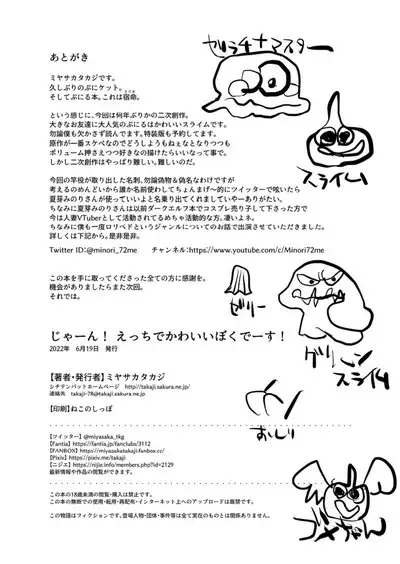 あとがき
ミヤサカタカジです。
久しぶりのぷにケット。
そしてぷにる本。これは宿命。
という感じに、今回は何年ぶりかの二次創作。
大きなお友達に大人気のぷにるはかわいいスライムです。
勿論僕も欠かさず読んでます。特装版も予約してます。
原作が一番スケベなのでどうしようもねぇなとなりつつも
ボリューム押さえつつ好きなの描けたらいいなって事で。
しかし二次創作はやっぱり難しい。難しいのだ。
今回の竿役が取り出した名刺、勿論偽物&偽名なわけですが
考えるのめんどいから誰か名前使わしてちょんまげ〜的にツイッターで呟いたら
夏芽みのりさんが使っていいよと名乗り出てくれましていやーありがたい。
ちなみに夏芽みのりさんは以前ダークエルフ本でコスプレ売り子して下さった方で
今は人妻VTuberとして活動されてるめちゃ活動的な方。凄いよネ。
ちなみに僕も一度ロリペドというジャンルについてのお話で出演させていただきました。
詳しくは下記から。是非是非。
Twitter ID:@minori_72me　チャンネル:https://www.youtube.com/c/Minori72me
この本を手に取ってくださった全ての方に感謝を。
機会がありましたらまた次回。
それでは。
じゃーん！ えっちでかわいいぼくでーす！
2022年　6月19日　発行
【著者・発行者】ミヤサカタカジ
シチテンバットホームページ　http://takaji.sakura.ne.jp/
連絡先　takaji-78@takaji.sakura.ne.jp
【印刷】ねこのしっぽ
【ツイッター】@miyasaka_tkg
【Fantia】https://fantia.jp/fanclubs/3112
【FANBOX】https://miyasakatakaji.fanbox.cc/
【Pixiv】https://pixiv.me/takaji
【ニジエ】https://nijie.info/members.php?id=2129
最新情報や作品の閲覧ができます。
この本の18歳未満の閲覧・購入は禁止です。
この本の無断での使用・転用・再配布・インターネット上へのアップロードは厳禁です。
この物語はフィクションです。登場人物・団体・事件等は全て実在のものとは関係ありません。
ゼリラチナマスター
スライム
ゼリー
グリーン
スライム
おしり